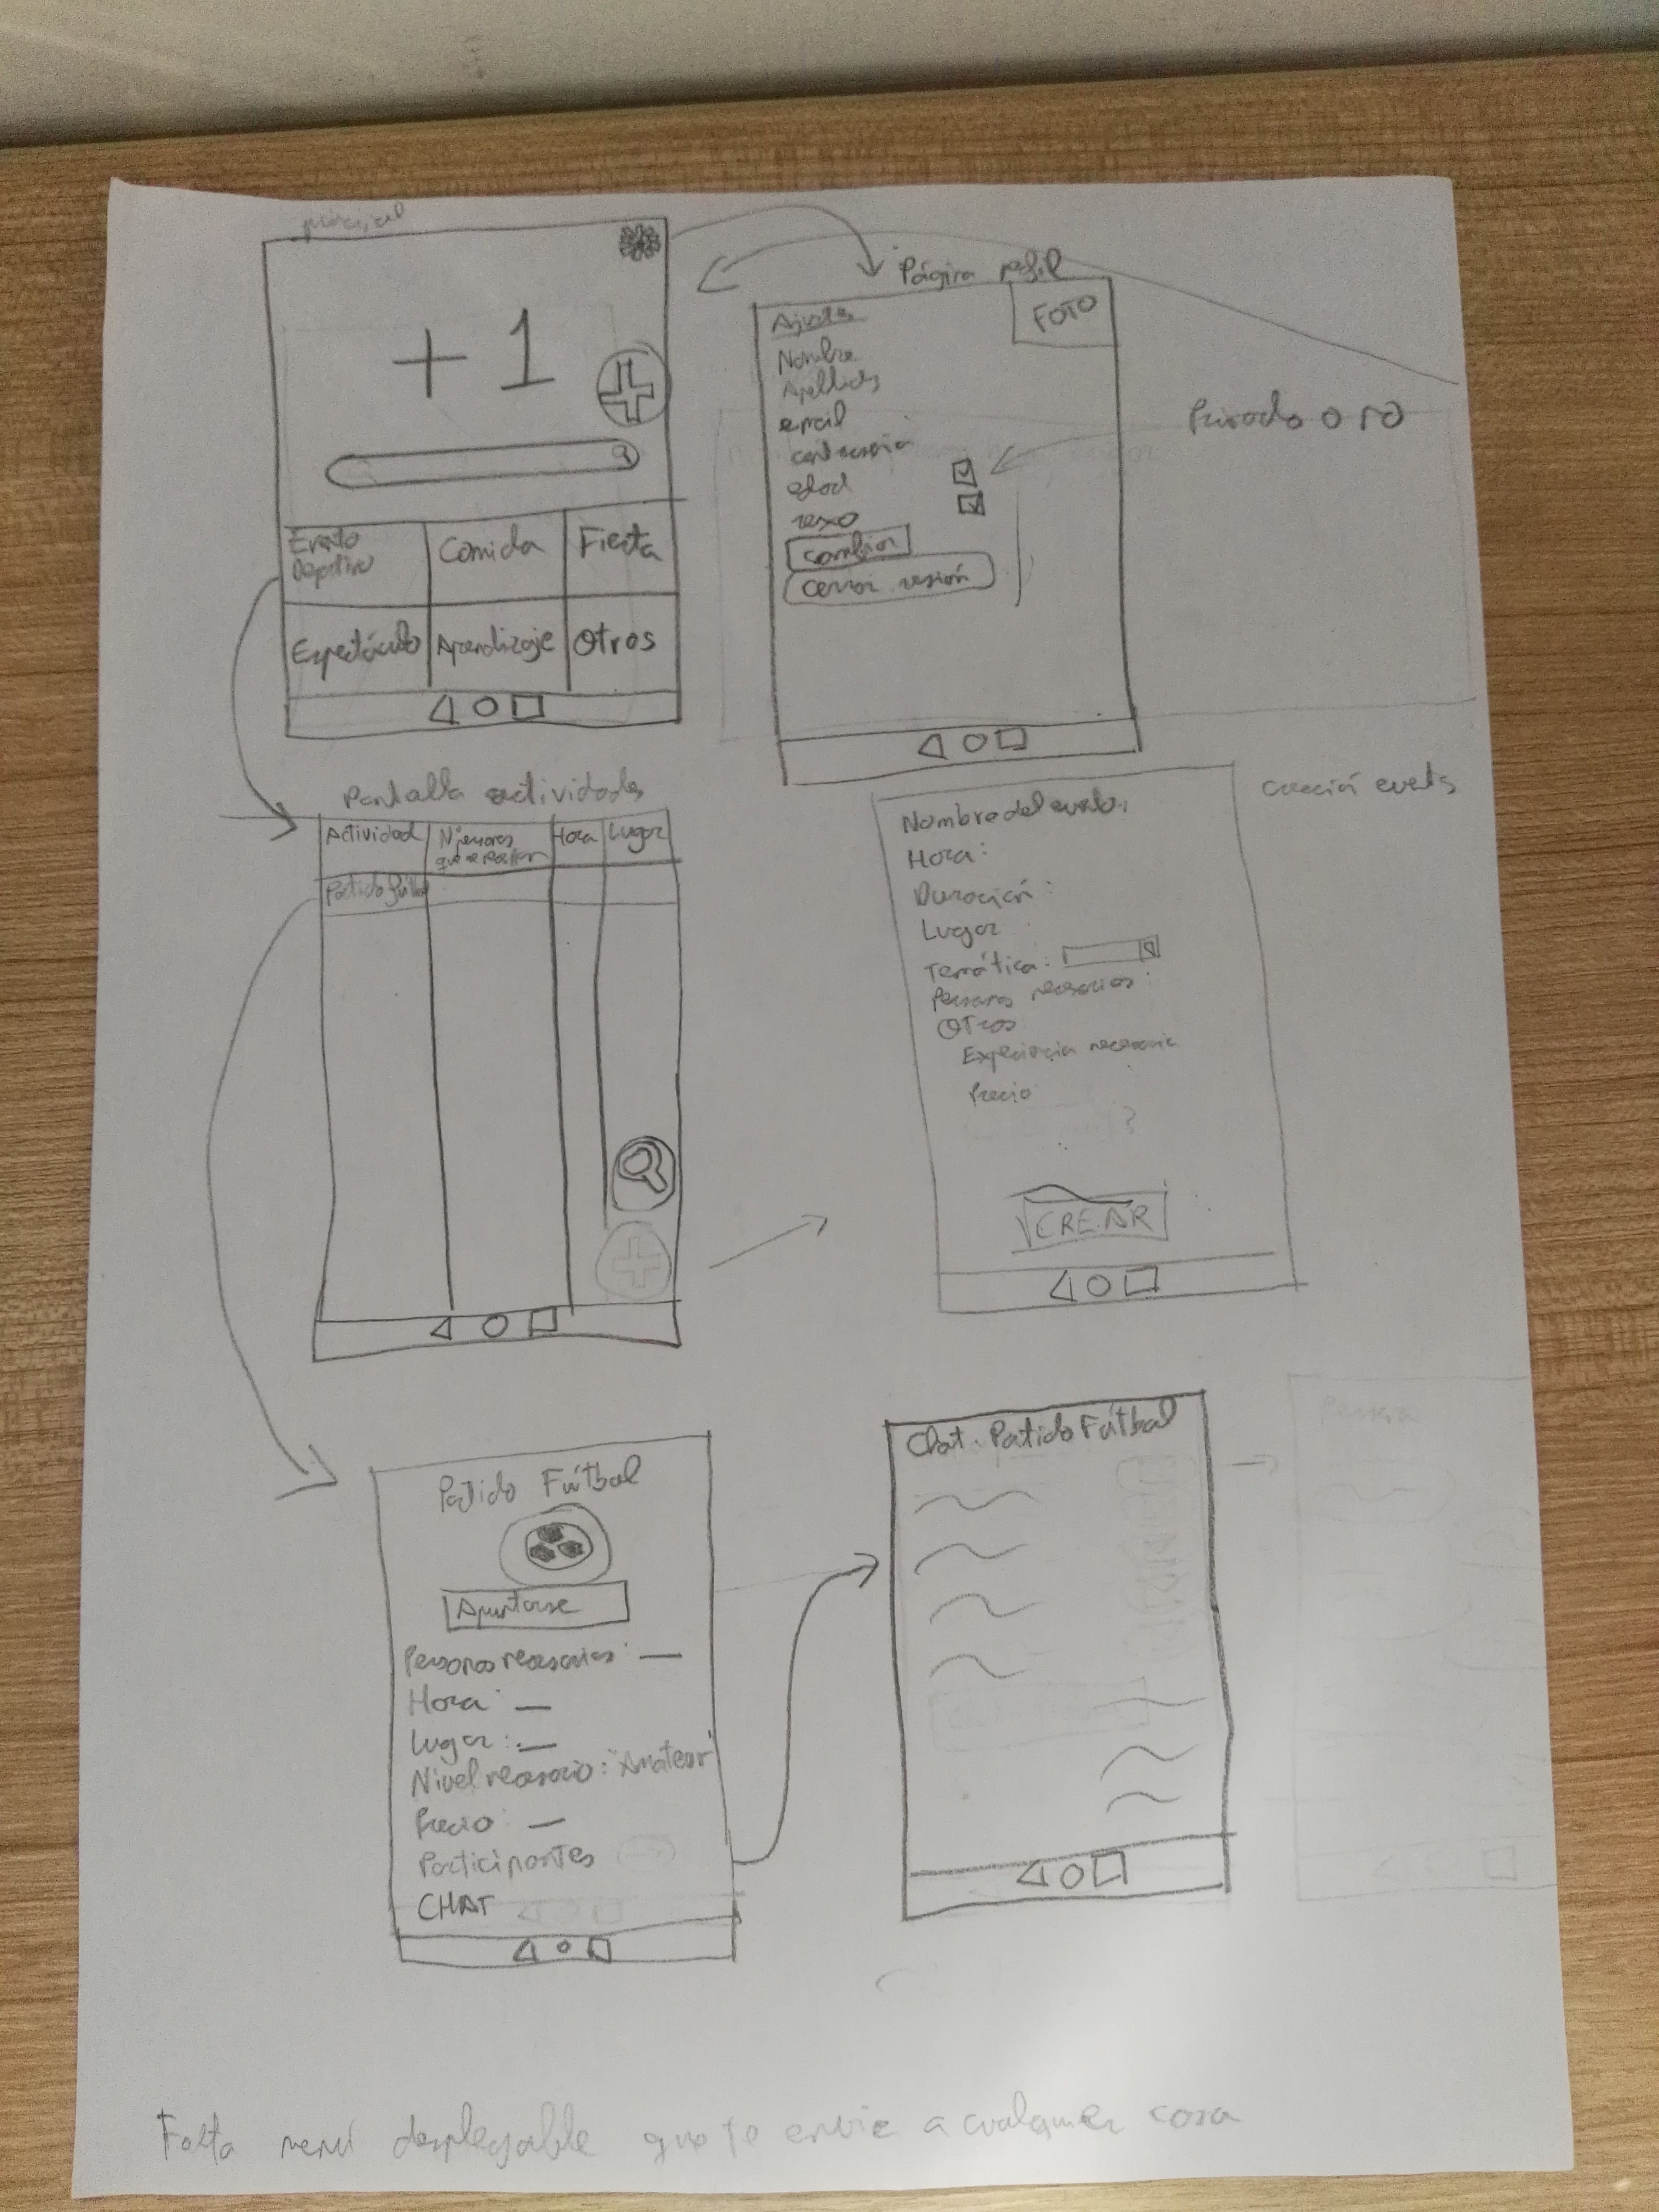 principal
+ 1
Evento
Deportivo
Comida
Fiesta
Espectáculo
Aprendizaje
Otros
Página perfil
Ajustes
FOTO
Nombre
Apellidos
email
contraseña
edad
sexo
cambiar
cerrar sesión
Privado o no
Pantalla actividades
Actividad
Nº personas
que se necesitan
Hora
Lugar
Partido fútbol
creación evento
Nombre del evento:
Hora:
Duración:
Lugar
Temática:
Personas necesarias:
Otros
Experiencia necesaria
Precio
?
CREAR
Partido Fútbol
Apuntarse
Personas necesarias: —
Hora: —
Lugar: —
Nivel necesario: "Amateur"
Precio: —
Participantes
CHAT
Chat. Partido Fútbal
Falta menú desplegable que te envie a cualquier cosa